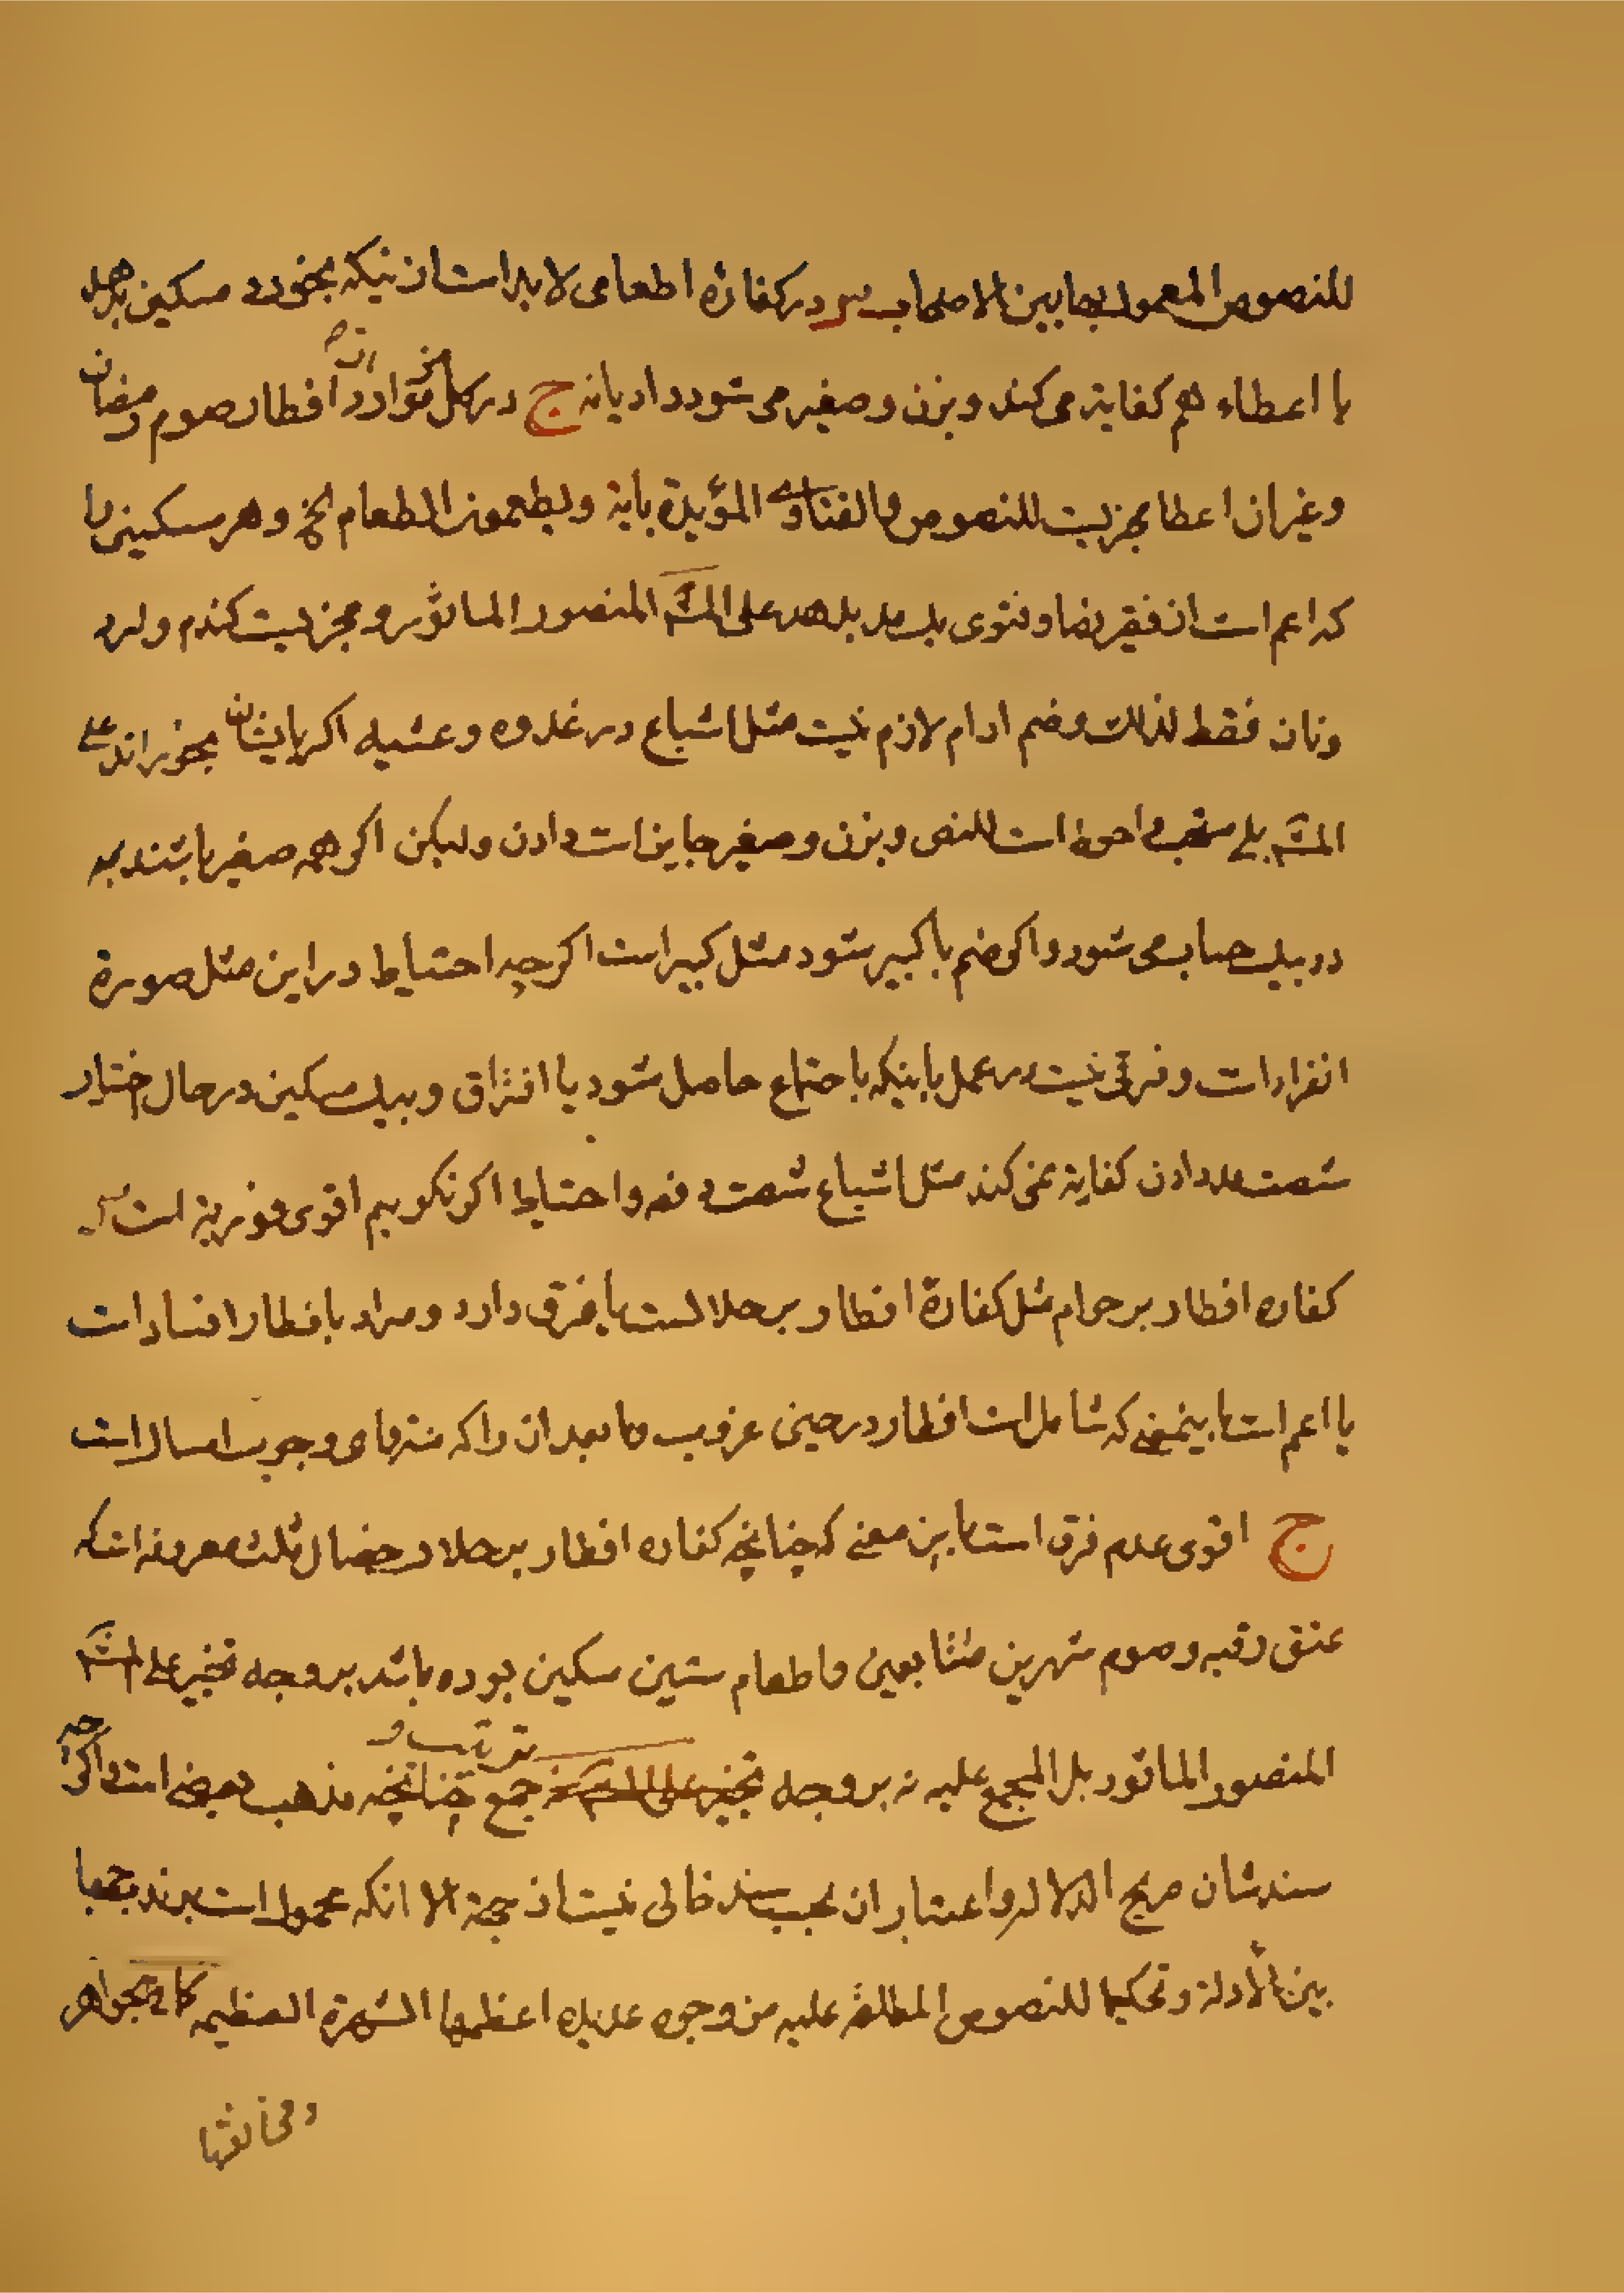 للنصوص المعمول بها بین الاصحاب س در کفاره اطعامی لابد است از نیکه بخورد مسکین بدهد
یا اعطاء هم کفایة می کند و بزن و صغیر می شود داد یا نه ج در کل موارد افطار صوم رمضان
وغیر ان اعطا مجزیست للنصوص والفتاوی المؤیدة بایة ویطعمون الطعام الخ وهر مسکینی را
که اعم است از فقیر نصا وفتوی یک مد بدهد علی المشهـ المنصور الماثور ومجزیست کندم وارد
ونان فقط لذلک وضم ادام لازم نیست مثل اشباع در غدوه وعشیه اکر بایشان بخوراند علی
المشهـ بلی مستحب واحوط است للنص وبزن وصغیر جایز است دادن ولیکن اکر همه صغیر باشند
دو بیک حساب می شود واکر ضم با کبیر شود مثل کبیر است اکرچه احتیاط در این مثل صورة
انفراد است وفرقی نیست در عمل باینکه باجتماع حاصل شود یا افتراق وبیک مسکین در حال اختیار
شصت مد دادن کفایة نمی کند مثل اشباع شصت دفعه واحتیاط اکر نکوییم اقوی فوریة است س
کفاره افطار بر حرام مثل کفارة افطار بر حلالست یا فرق دارد ومراد بافطار افساد است
یا اعم است باینمعنی که شامل است افطار در حین غروب وما بعد ان را که منتهای وجوب امساک است
ج اقوی عدم فرق است باین معنی که چنانچه کفاره افطار بر حلال در خصال ثلث معروفه است که
عتق رقبه وصوم شهرین متتابعین واطعام ستین مسکین بوده باشد بر وجه تخییر علی المشهـ
المنصور الماثور بل المجمع علیه نه بر وجه ترتیب و جمع چنانچه مذهب بعضی است واکر چه
سندشان صریح الدلاله واعتبار ان بحسب سند خالی نیست از حجة الا انکه محمول است بر ندب جمعا
بین الأدلة وتحکیما للنصوص المطلقة علیه من وجوه عدیده اعظمها الشهرة العظیمه کما فی الجواهر